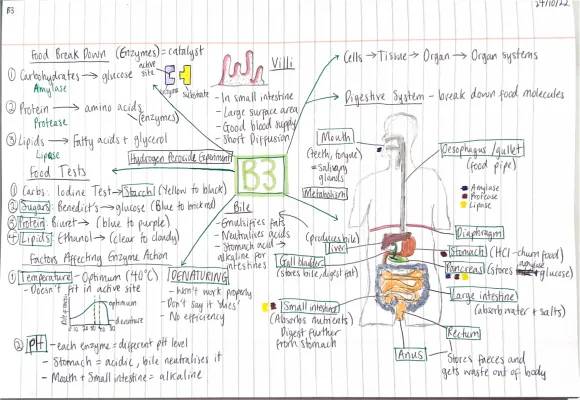 B3
24/10/22
Food Break Down (Enzymes) = catalyst
① Carbohydrates → glucose
Amylase
active site
enzyme
substrate
② Protein → amino acids
Protease
(enzymes)
③ Lipids → Fatty acids + glycerol
Lipase
Villi
- In small intestine
- Large surface area
- Good blood supply
- Short Diffusion
Cells → Tissue → Organ → Organ systems
Digestive System - break down food molecules
Hydrogen Peroxide Experiment
B3
Metabolism
Food Tests
① Carbs: Iodine Test → Starch (Yellow to black)
② Sugars: Benedict's → glucose (Blue to brick red)
③ Protein: Biuret → (blue to purple)
④ Lipids: Ethanol → (clear to cloudy)
Bile
- Emulsifies fats
- Neutralises acids
- Stomach acid →
alkaline for
intestines
Factors Affecting Enzyme Action
① Temperature - Optimum (40°C)
- Doesn't fit in active site
optimum
denature
DENATURING
- Won't work properly
- Don't say it 'dies'
- No efficiency
② pH - each enzyme = different pH level
- Stomach = acidic, bile neutralises it
- Mouth + Small intestine = alkaline
Mouth
(teeth, tongue)
= salivary
glands
Oesophagus/gullet
(food pipe)
Amylase
Protease
Lipase
Diaphragm
(produces bile)
Liver
Gall bladder
(stores bile, digest fat)
Stomach (HCl - churn food)
Pancreas (stores glucose)
Small intestine
(Absorbs nutrients)
Digest further
from stomach
Large intestine
(absorb water + salts)
Rectum
Anus
Stores faeces and
gets waste out of body